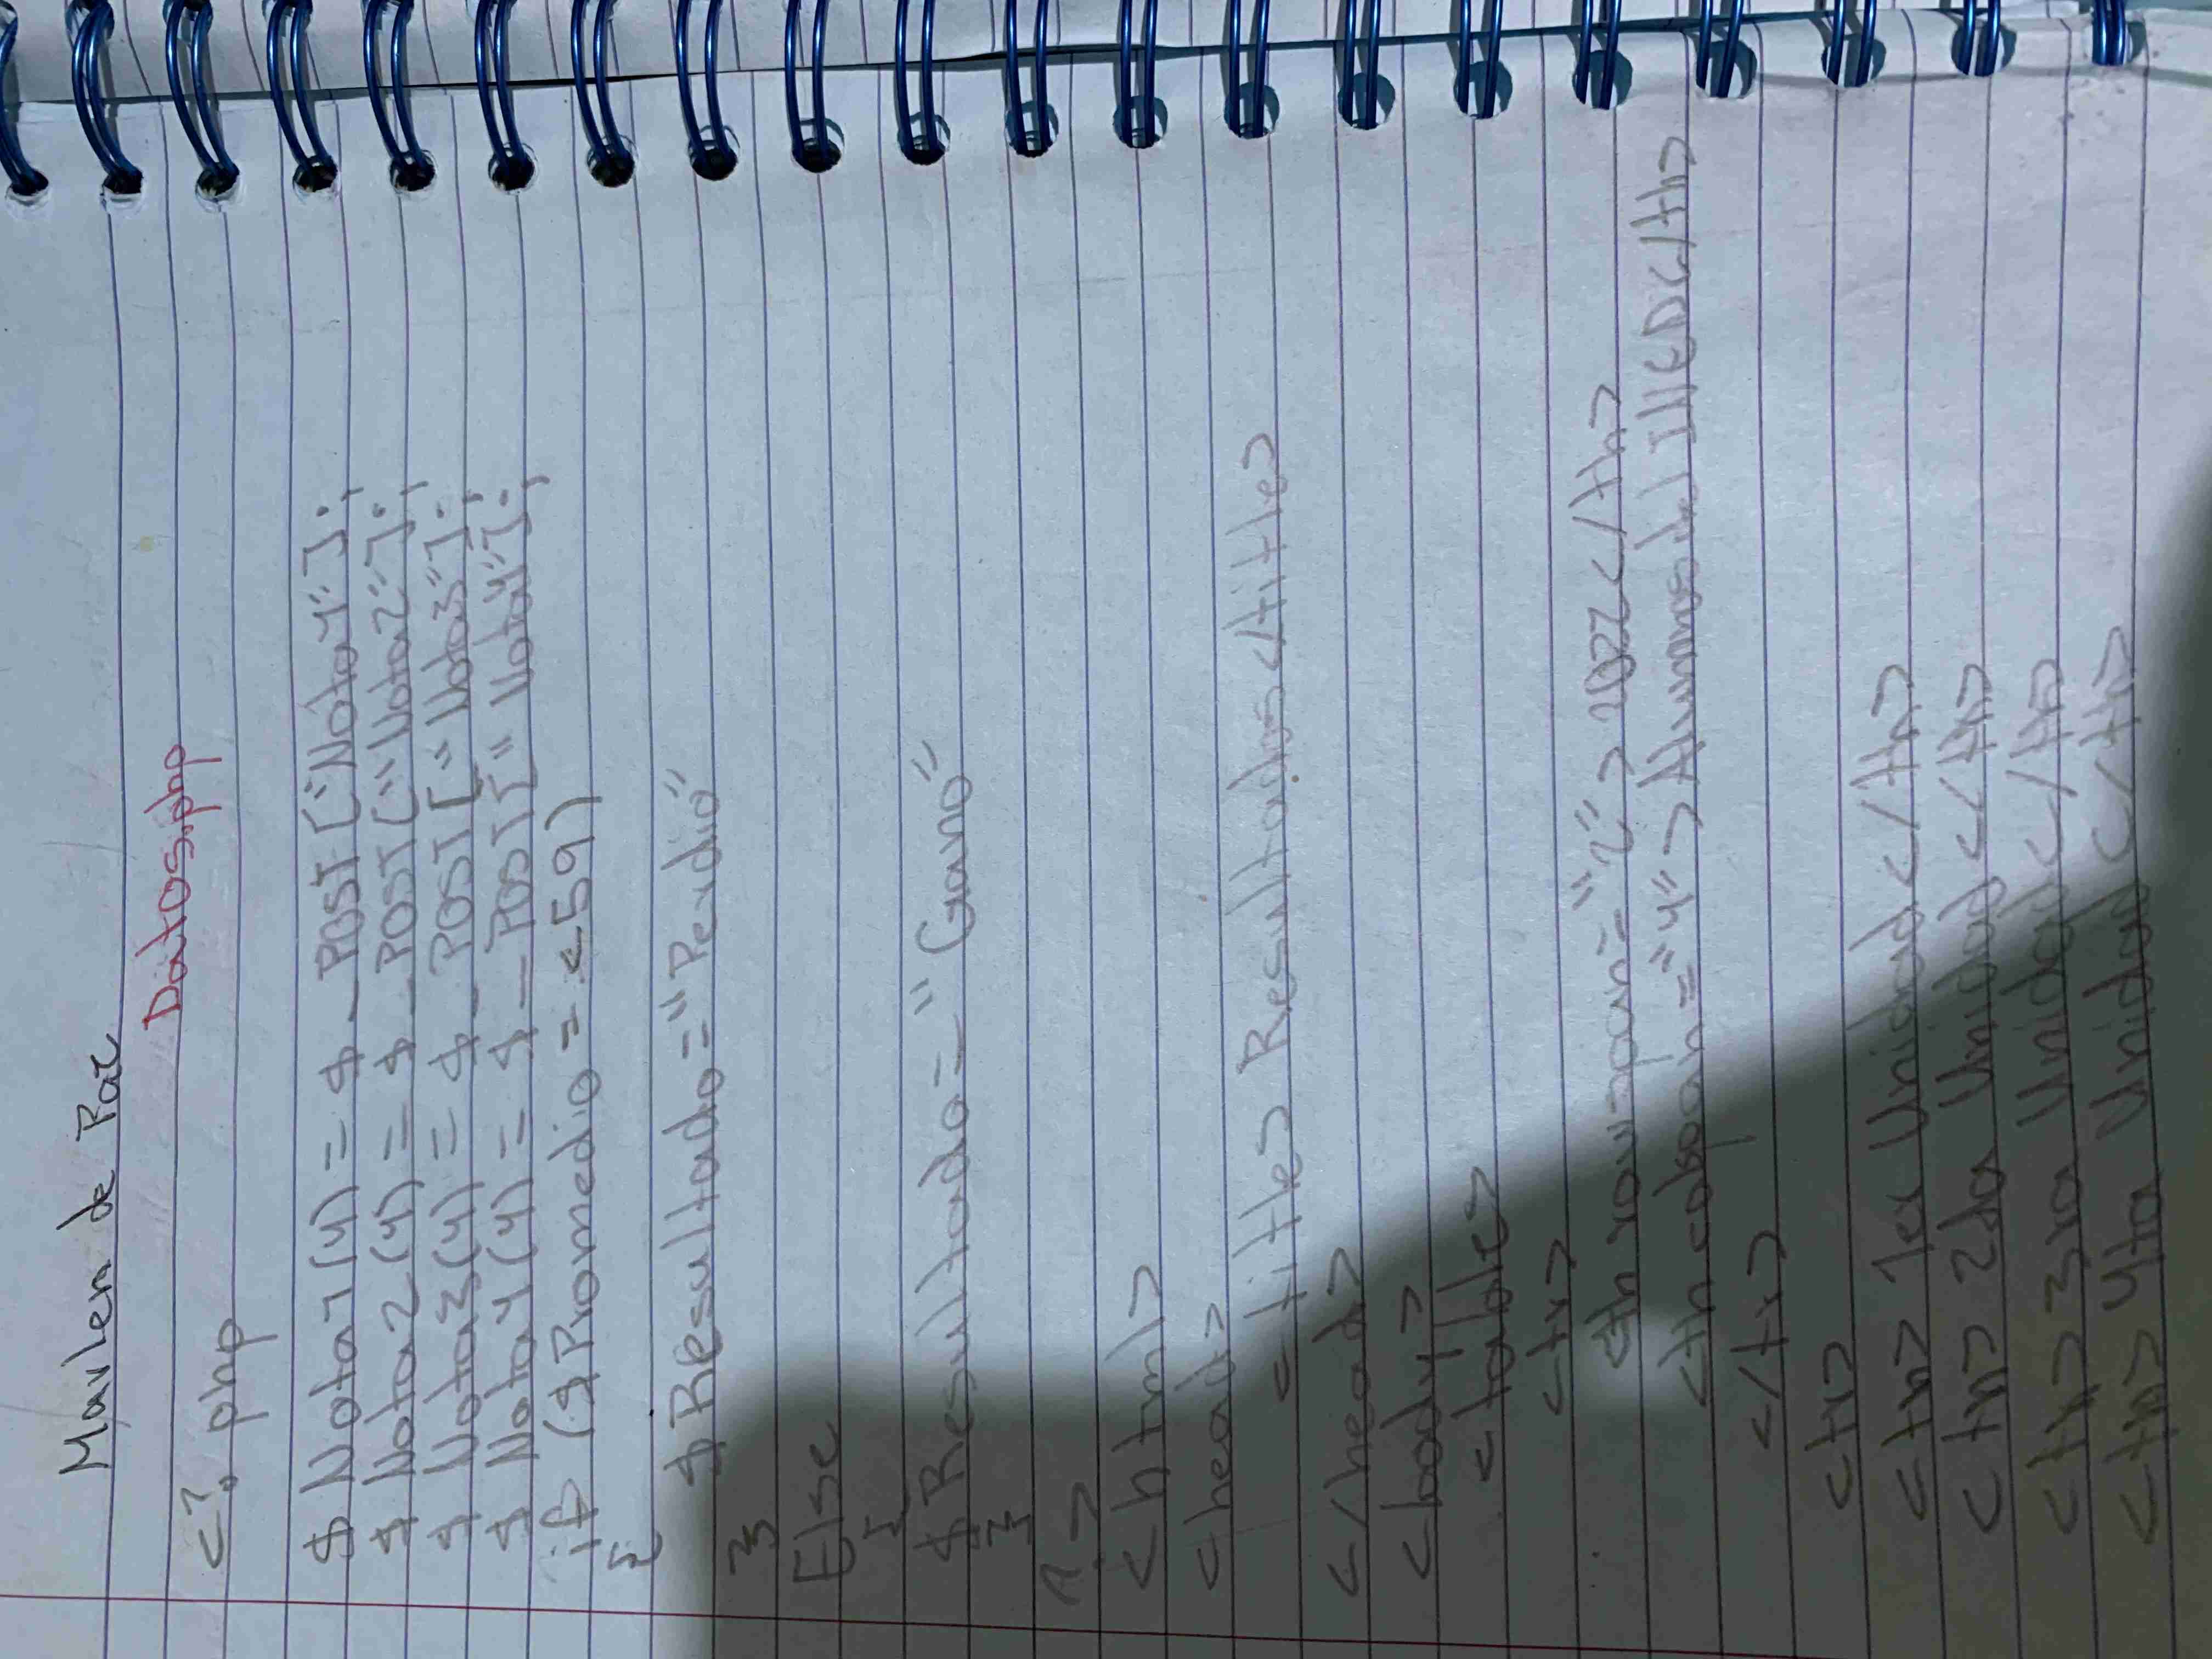 Marlen de Paz
Datos.php
<?php
$ Nota1(4) = $_POST["Nota1"];
$ Nota2(4) = $_POST["Nota2"];
$ Nota3(4) = $_POST["Nota3"];
$ Nota4(4) = $_POST["Nota4"];
if ($Promedio = <59)
{
$Resultado="Perdio"
}
Else
{
$Resultado="Gano"
}
?>
<html>
<head>
<title> Resultados</title>
</head>
<body>
<table>
<tr>
<th rowspan="2"> 2022</th>
<th colspan="4"> Alumnos del INED</th>
</tr>
<tr>
<th> 1er Unidad</th>
<th> 2da Unidad</th>
<th> 3ra Unidad</th>
<th> 4ta Unidad</th>